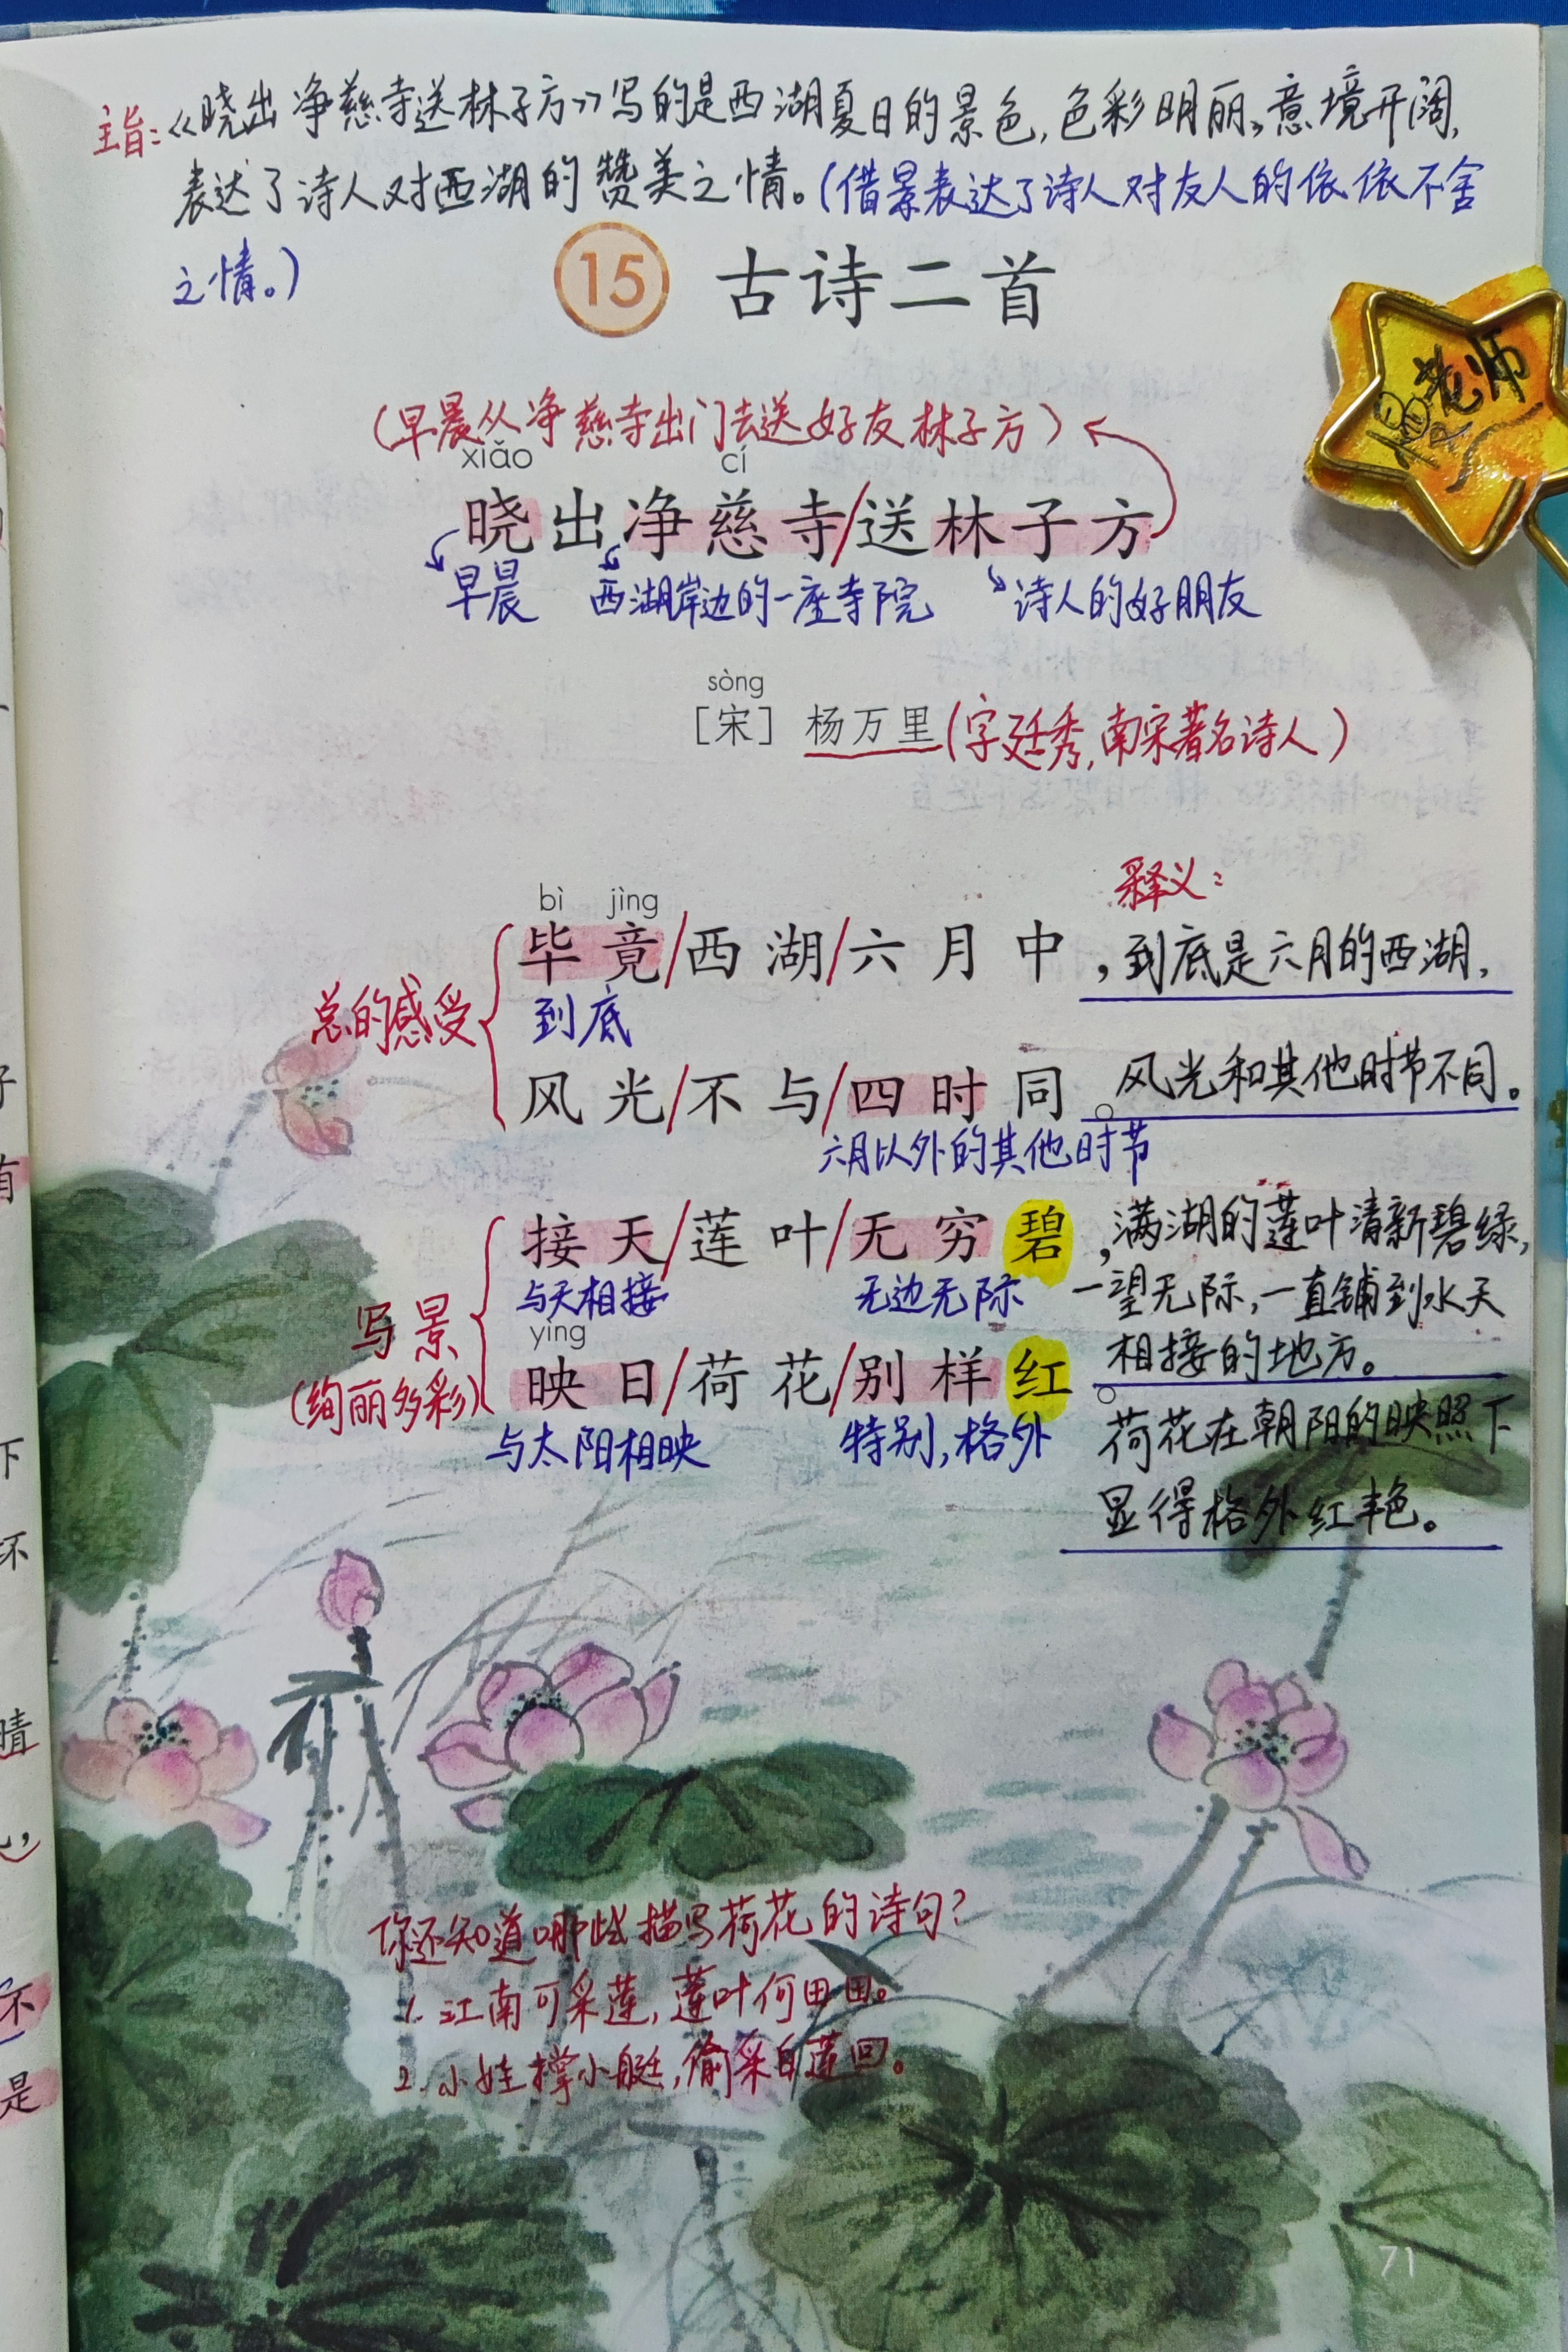 主旨:《晓出净慈寺送林子方》写的是西湖夏日的景色,色彩明丽,意境开阔,
表达了诗人对西湖的赞美之情。(借景表达了诗人对友人的依依不舍
之情。)
15 古诗二首
老师
(早晨从净慈寺出门去送好友林子方)
xiǎo cí
晓出净慈寺/送林子方
早晨 西湖岸边的一座寺院 诗人的好朋友
sòng
[宋] 杨万里(字廷秀,南宋著名诗人)
释义:
bì jìng
毕竟/西湖/六月中,到底是六月的西湖,
总的感受
到底
风光/不与/四时同。风光和其他时节不同。
六月以外的其他时节
接天/莲叶/无穷碧,满湖的莲叶清新碧绿,
与天相接 无边无际 一望无际,一直铺到水天
写景
(绚丽多彩)
yìng
相接的地方。
映日/荷花/别样红。
与太阳相映 特别,格外 荷花在朝阳的映照下
显得格外红艳。
你还知道哪些描写荷花的诗句?
1. 江南可采莲,莲叶何田田。
2. 小娃撑小艇,偷采白莲回。
71
子
有
下
坏
晴
心,
不
是